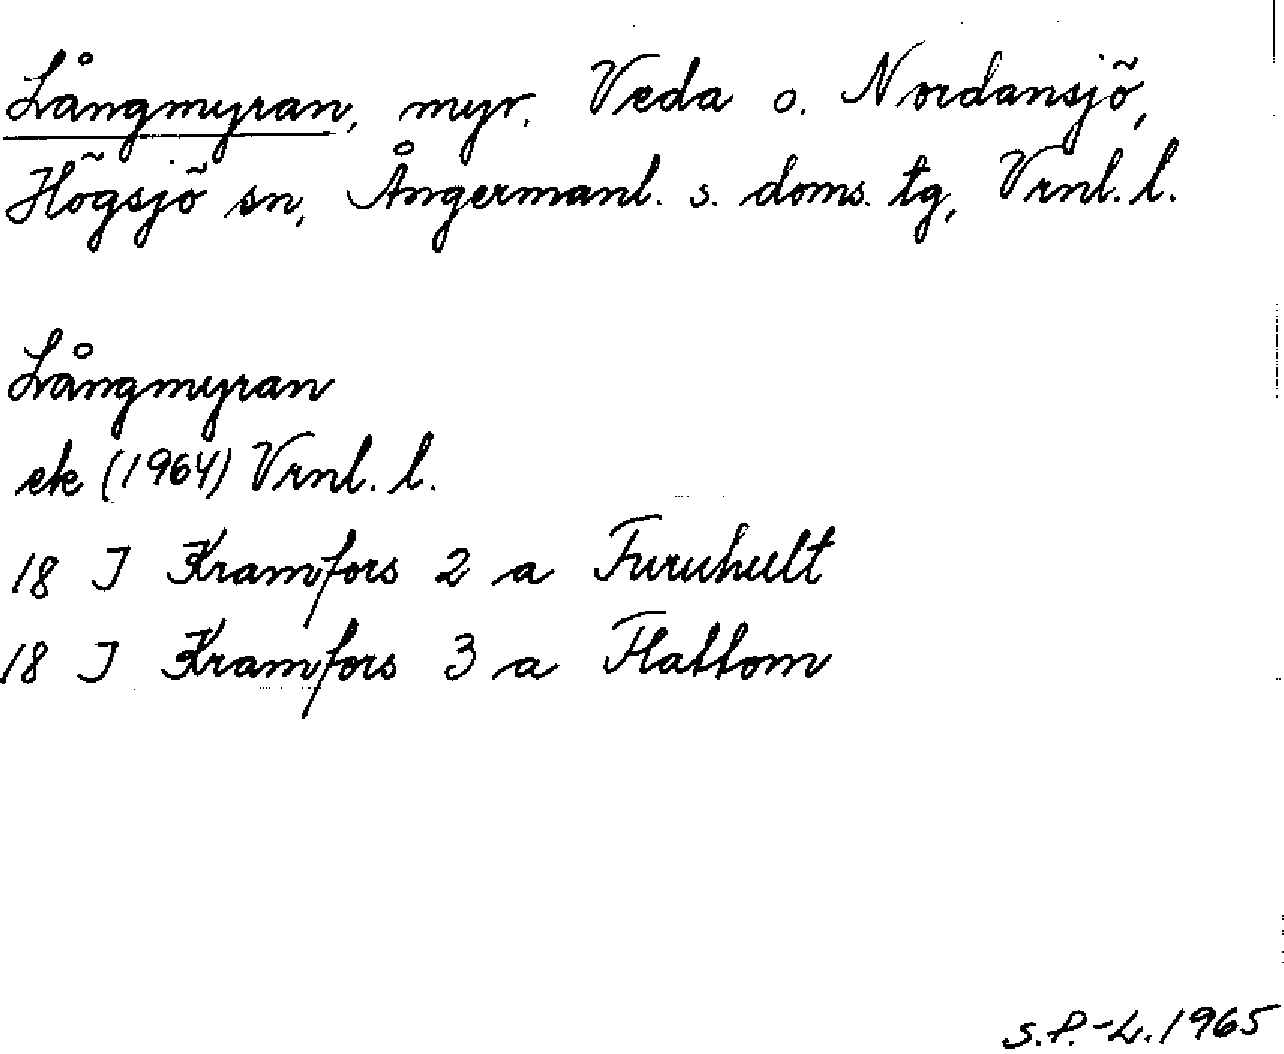 Långmyran, myr. Veda o. Nordansjö,
Högsjö sn, Ångermanl. s. doms. tg, Vrnl. l.
Långmyran
ek (1964) Vrnl. l.
18 I Kramfors 2 a Furuhult
18 I Kramfors 3 a Flattom
S.P.-L. 1965